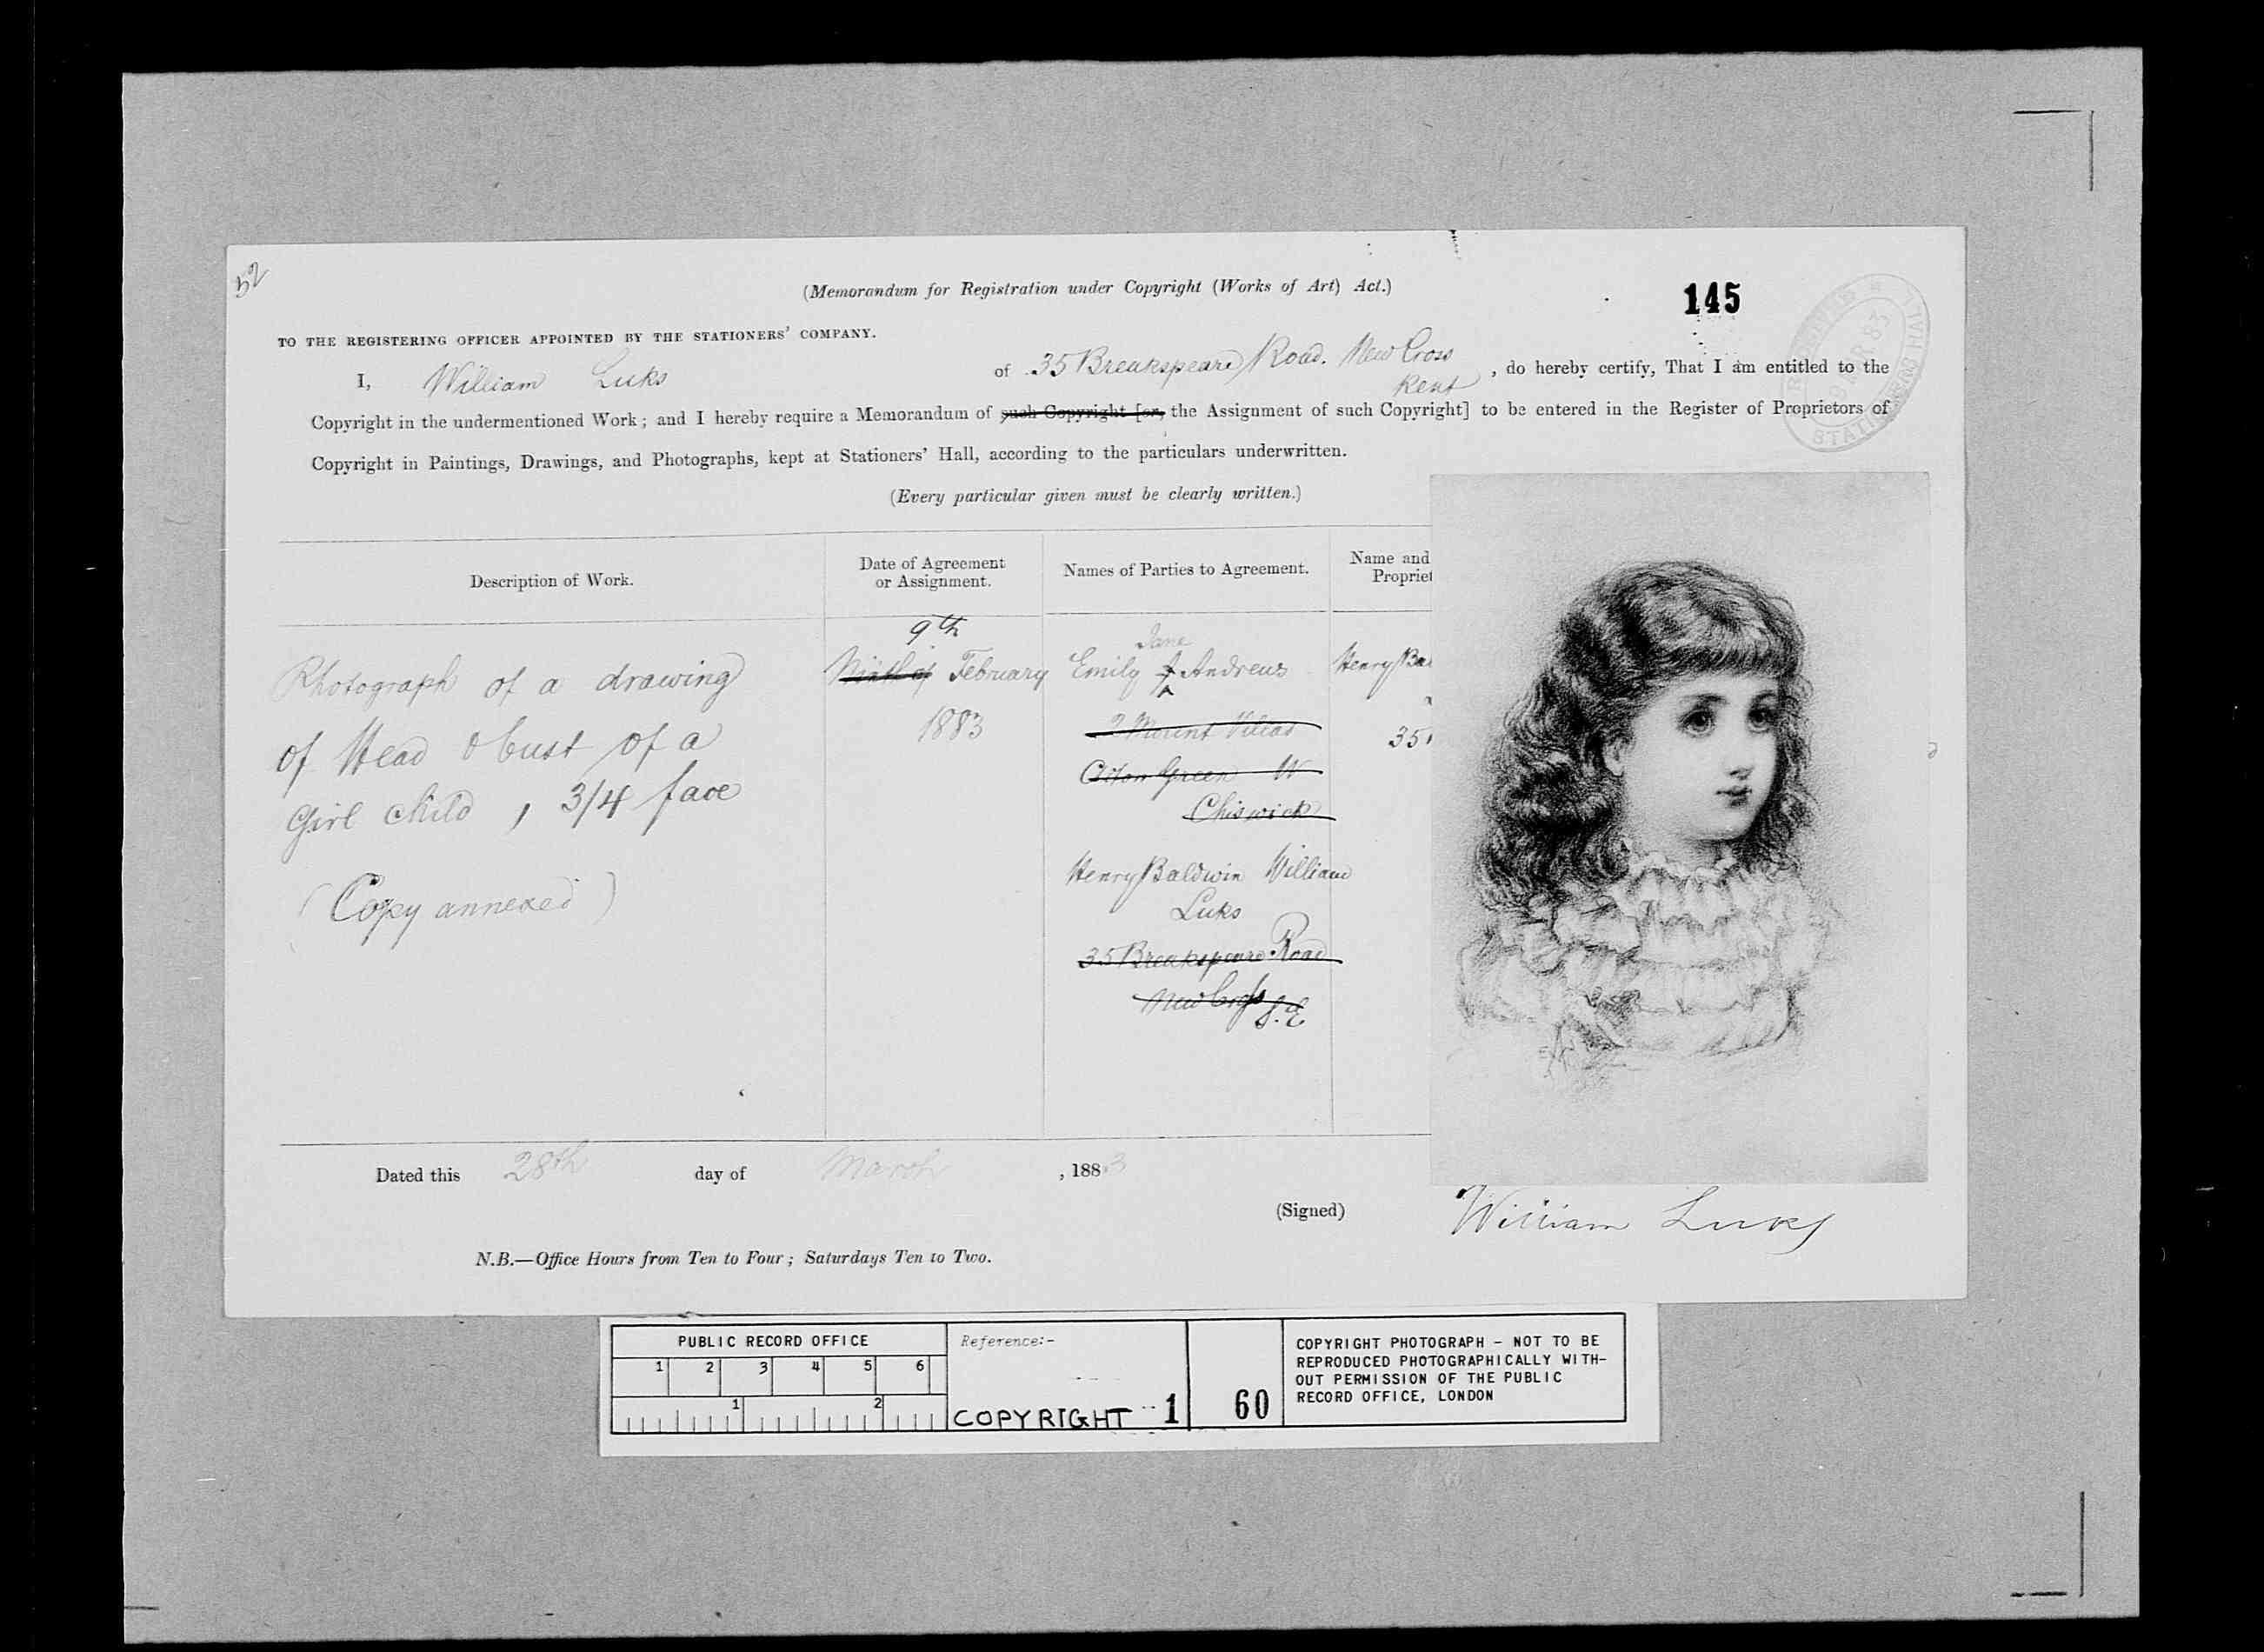 52
(Memorandum for Registration under Copyright (Works of Art) Act.)
145
TO THE REGISTERING OFFICER APPOINTED BY THE STATIONERS' COMPANY.
I, William Luks of 35 Breakspeare Road. New Cross
Kent , do hereby certify, That I am entitled to the
Copyright in the undermentioned Work; and I hereby require a Memorandum of such Copyright [or, the Assignment of such Copyright] to be entered in the Register of Proprietors of
Copyright in Paintings, Drawings, and Photographs, kept at Stationers' Hall, according to the particulars underwritten.
(Every particular given must be clearly written.)
Description of Work.
Photograph of a drawing
of Head & bust of a
Girl child , 3/4 face
(Copy annexed)
Date of Agreement
or Assignment.
9th
Ninth of February
1883
Names of Parties to Agreement.
Jane
Emily J Andrews
2 Mount Villas
Acton Green W
Chiswick
Henry Baldwin William
Luks
35 Breakspeare Road
New Cross S.E
Name and
Propriet
Henry Bal
35
Dated this 28th day of March , 1883
(Signed) William Luks
N.B.—Office Hours from Ten to Four; Saturdays Ten to Two.
PUBLIC RECORD OFFICE
1 2 3 4 5 6
1 2
Reference:-
COPYRIGHT 1
60
COPYRIGHT PHOTOGRAPH - NOT TO BE
REPRODUCED PHOTOGRAPHICALLY WITH-
OUT PERMISSION OF THE PUBLIC
RECORD OFFICE, LONDON